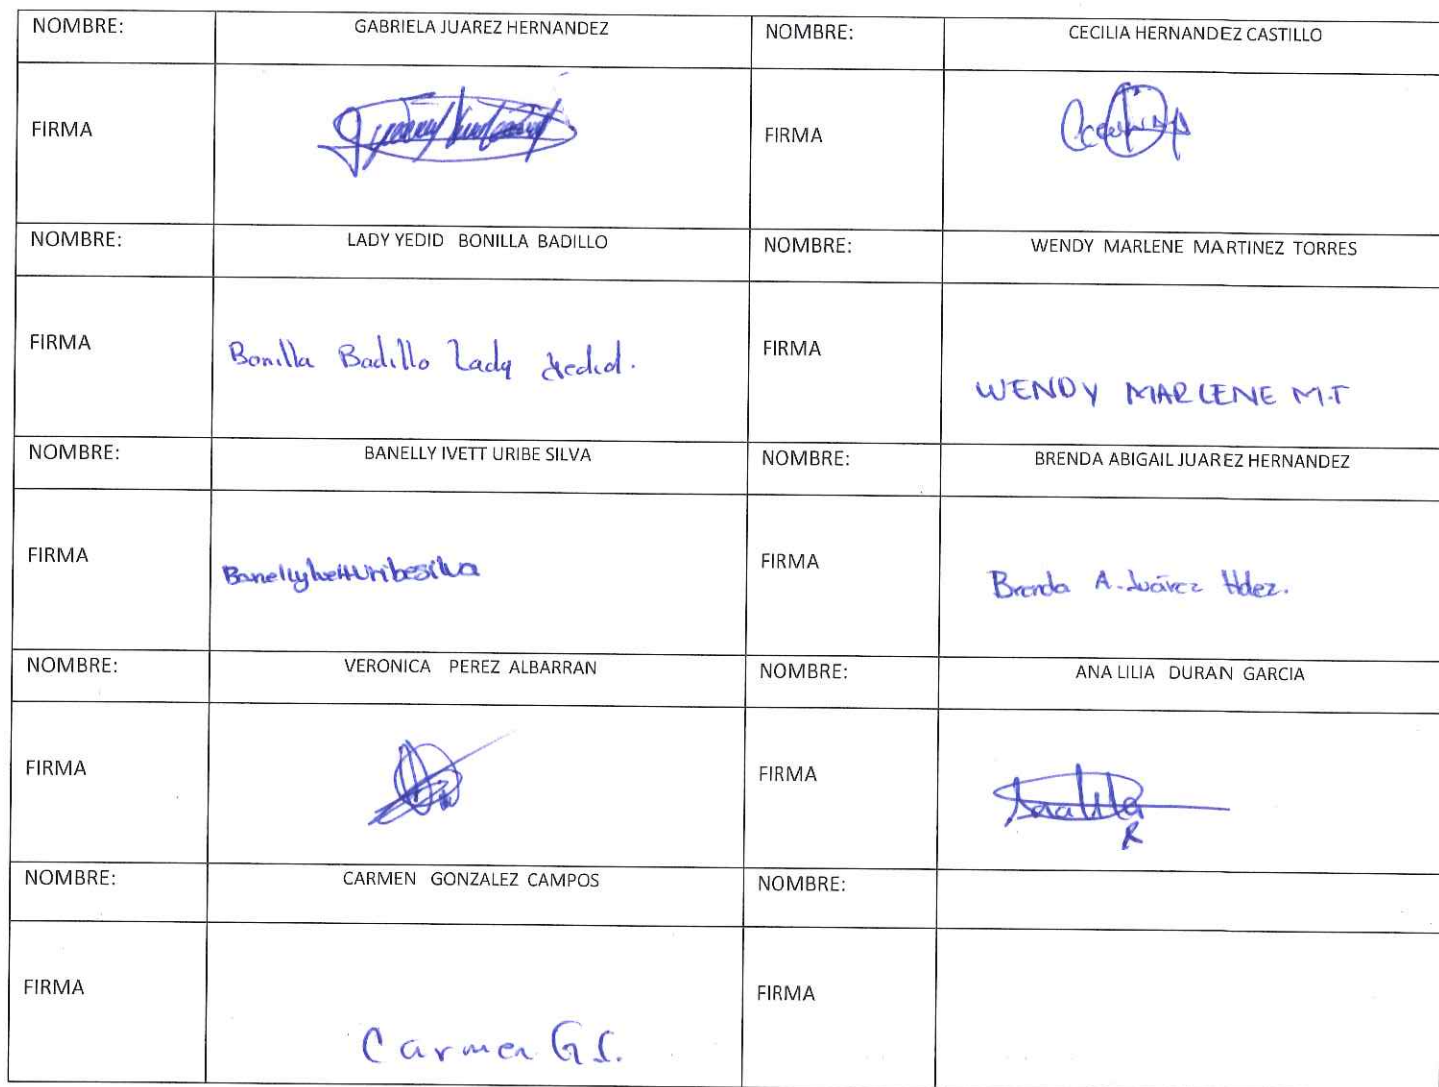 NOMBRE: GABRIELA JUAREZ HERNANDEZ NOMBRE: CECILIA HERNANDEZ CASTILLO
FIRMA FIRMA
NOMBRE: LADY YEDID BONILLA BADILLO NOMBRE: WENDY MARLENE MARTINEZ TORRES
FIRMA Bonilla Badillo Lady Yedid. FIRMA WENDY MARLENE M.T
NOMBRE: BANELLY IVETT URIBE SILVA NOMBRE: BRENDA ABIGAIL JUAREZ HERNANDEZ
FIRMA Banelly Ivett Uribe silva FIRMA Brenda A. Juárez Hdez.
NOMBRE: VERONICA PEREZ ALBARRAN NOMBRE: ANA LILIA DURAN GARCIA
FIRMA FIRMA
NOMBRE: CARMEN GONZALEZ CAMPOS NOMBRE:
FIRMA Carmen G C. FIRMA